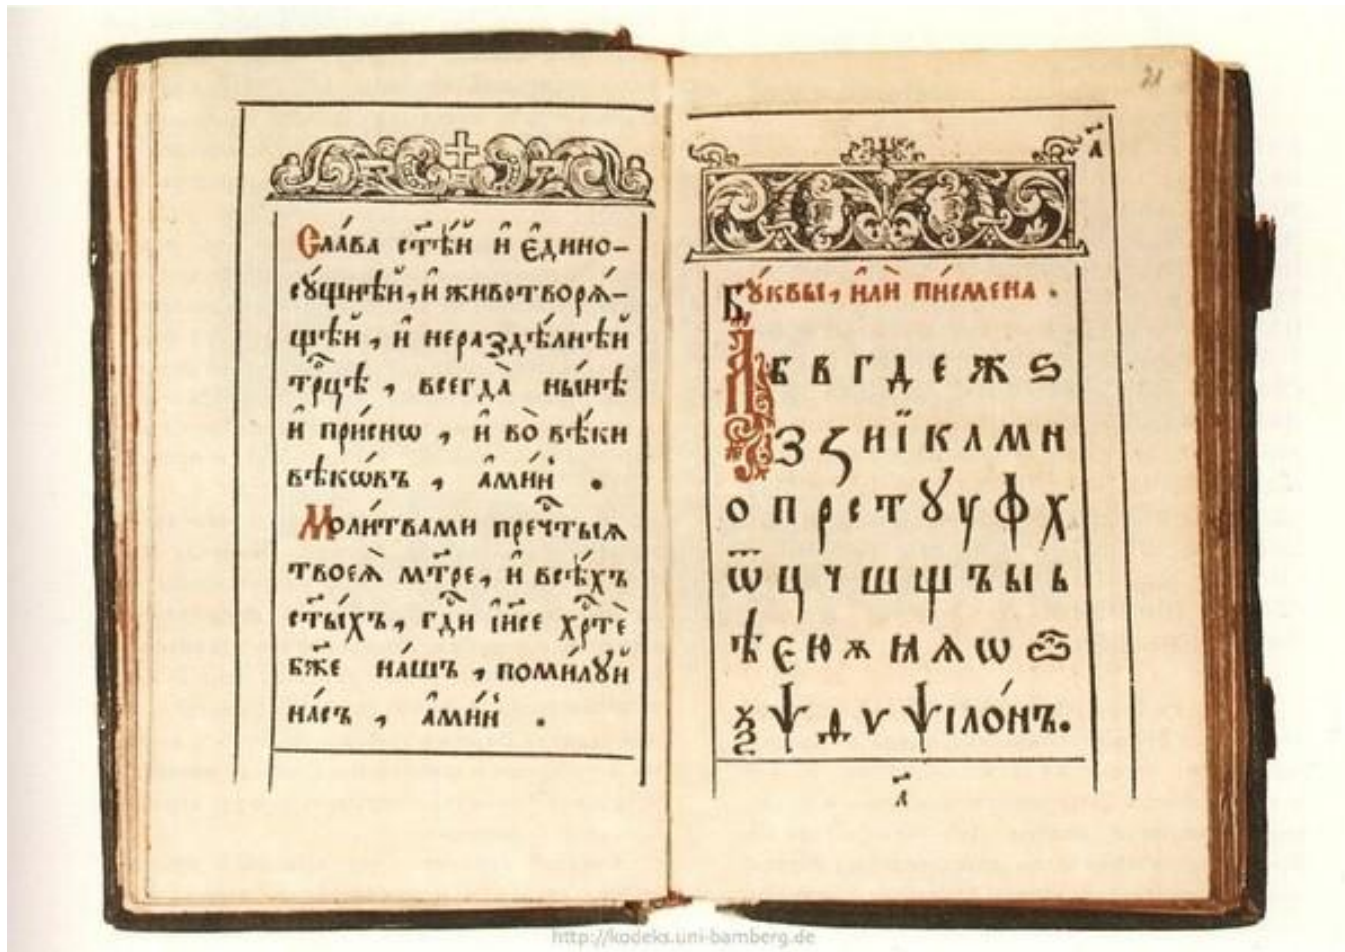 Сла́ва ст҃ѣ́й и҆ є҆дино-
су́щнѣй, и҆ животворѧ́-
щѣй, и҆ нераздѣ́лнѣй
трⷪ҇цѣ, всегда̀ ны́нѣ
и҆ при́снѡ, и҆ во̀ вѣ́ки
вѣкѡ́въ, а҆ми́нь.
Моли́твами пречⷭ҇тыѧ
твоеѧ̀ мт҃ре, и҆ всѣ́хъ
ст҃ы́хъ, гдⷭ҇и і҆и҃се хрⷭ҇тѐ
бж҃е на́шъ, поми́лꙋй
на́съ, а҆ми́нь.
21
а҃
Бꙋ́квы, и҆лѝ пи́смена.
А б в г д е ж ѕ
з ꙁ и ї к л м н
о п р с т ꙋ у ф х
ѿ ц ч ш щ ъ ы ь
ѣ є ю ѫ ꙗ ѧ ѡ ѽ
ѯ ѱ д ѵ ѱіло́нъ.
а҃
http://kodeks.uni-bamberg.de